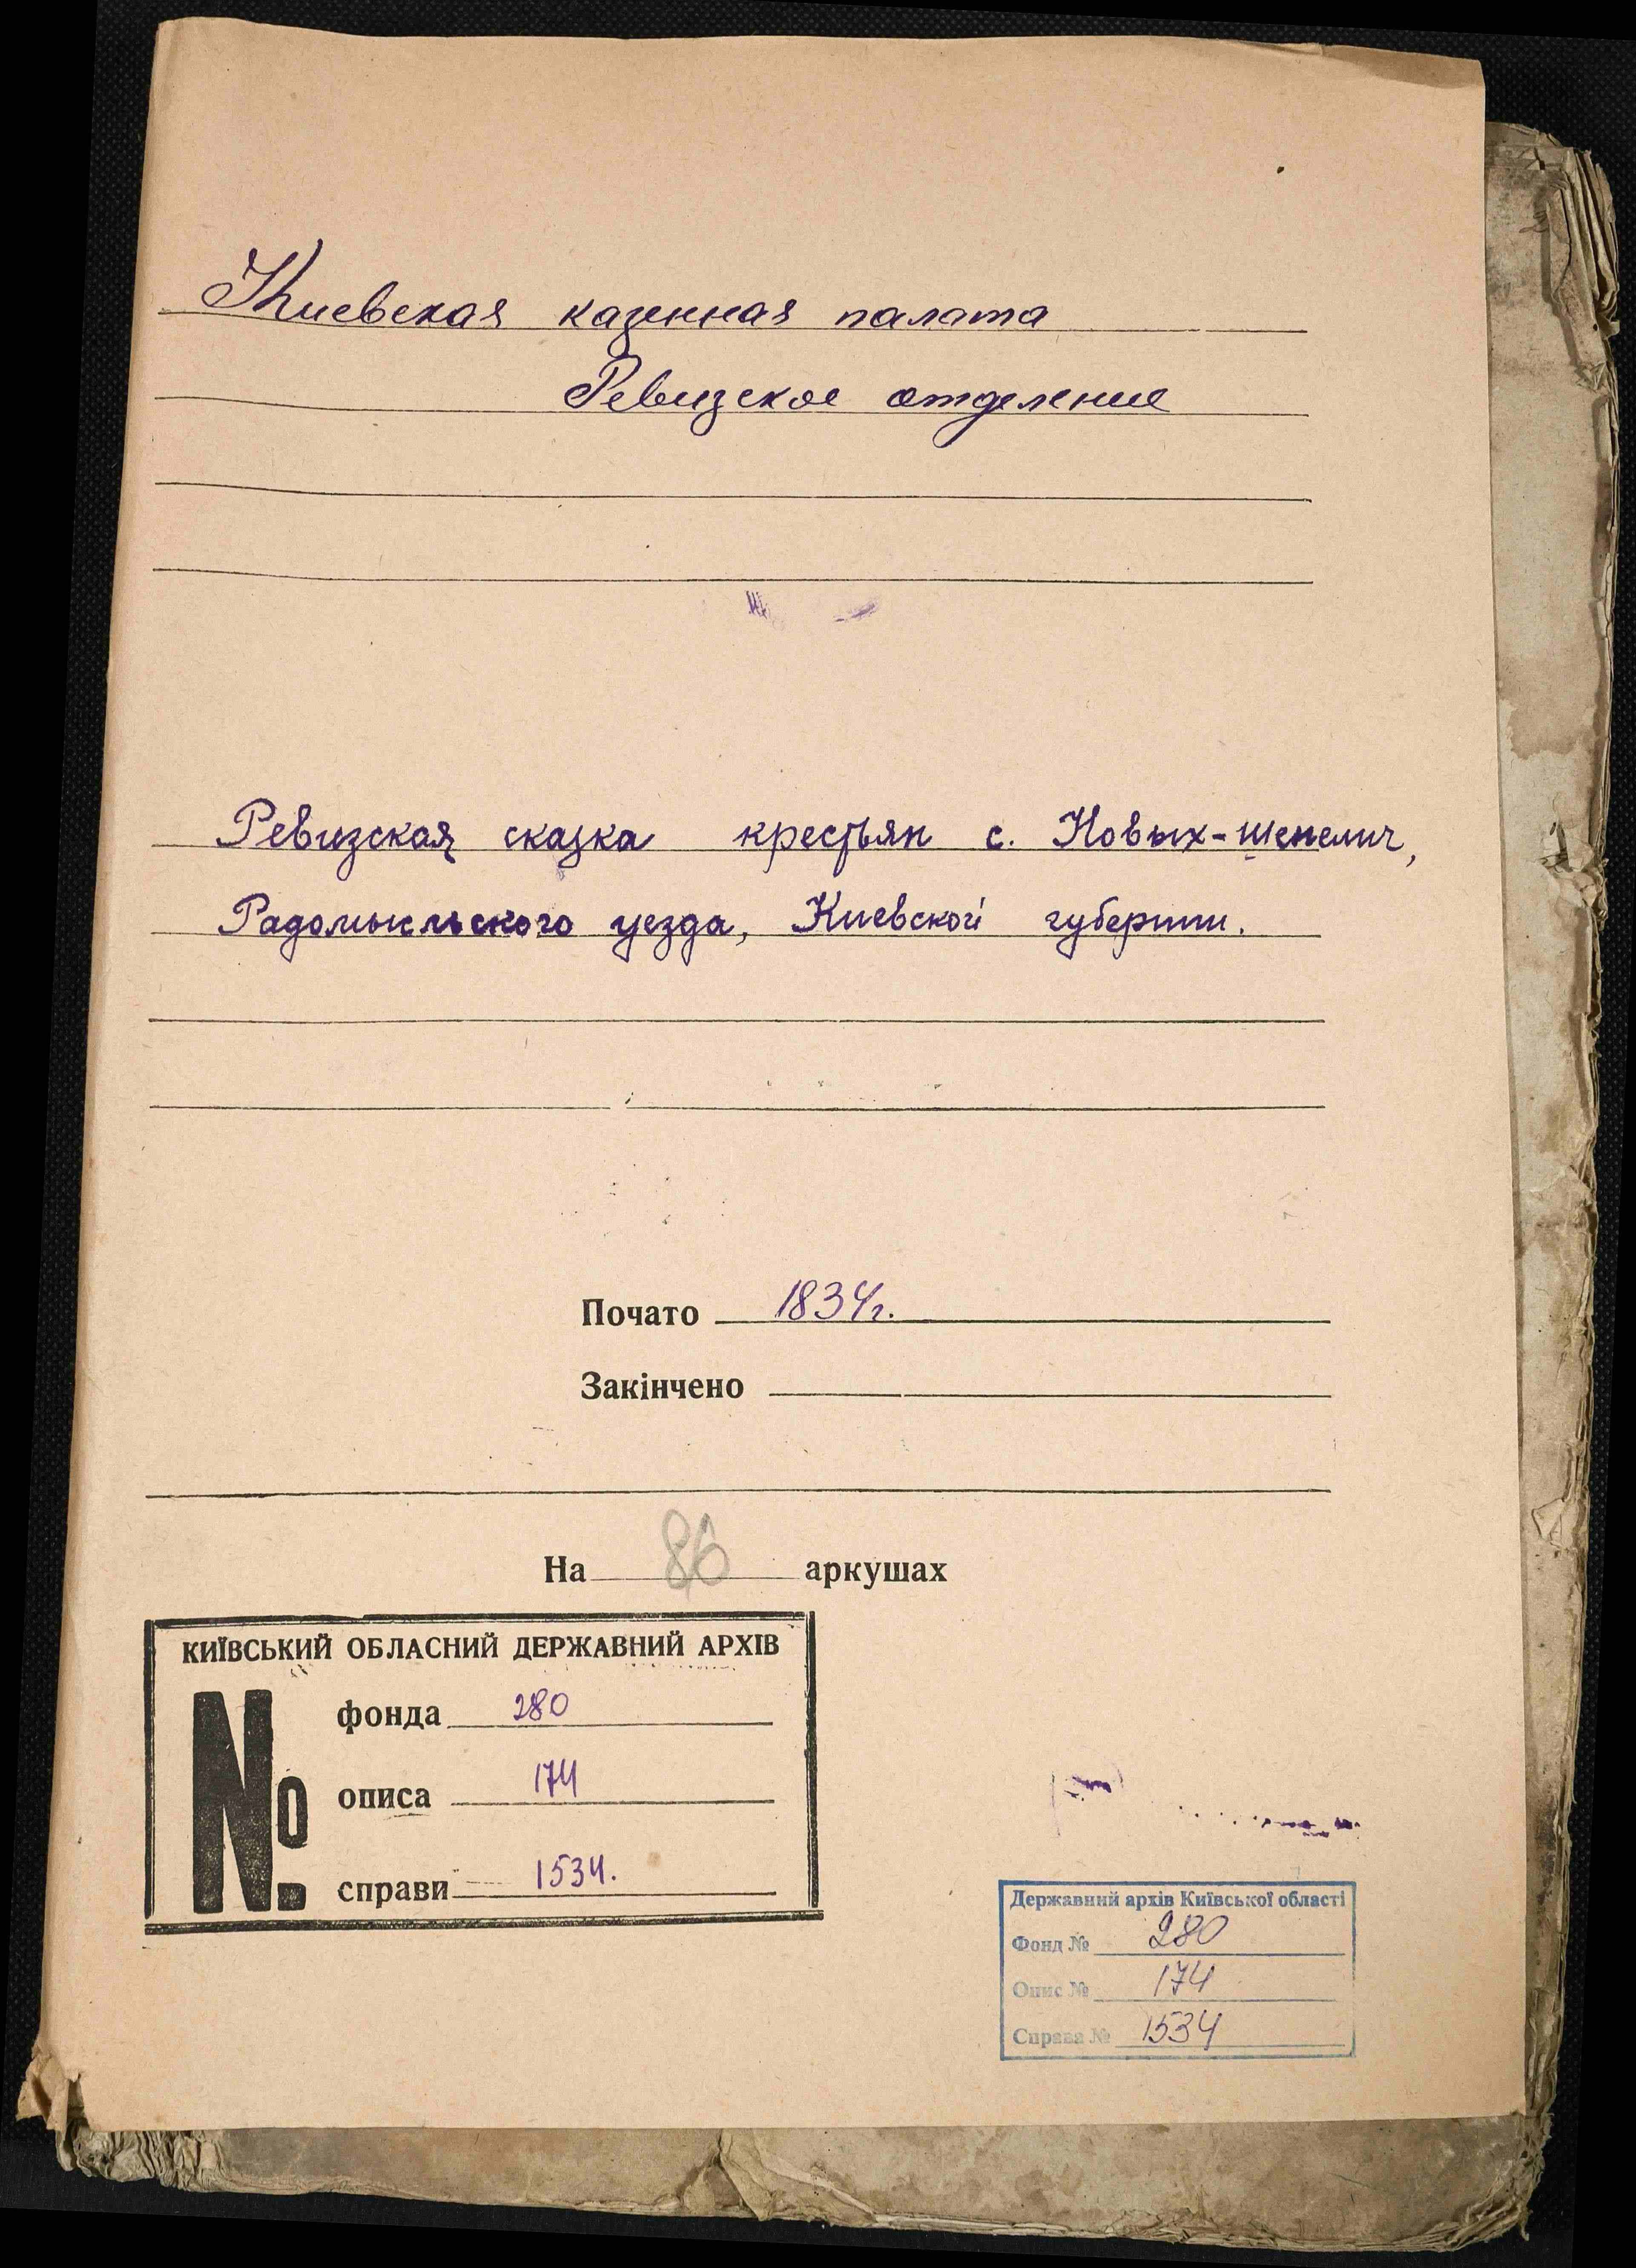 Киевская казенная палата
Ревизское отделение
Ревизская сказка крестьян с. Новых-Шепелич,
Радомысльского уезда, Киевской губернии.
Почато 1834г.
Закінчено
На 86 аркушах
КИЇВСЬКИЙ ОБЛАСНИЙ ДЕРЖАВНИЙ АРХІВ
№
фонда 280
описа 174
справи 1534.
Державний архів Київської області
Фонд № 280
Опис № 174
Справа № 1534